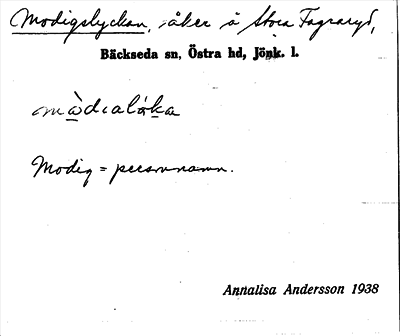 Modigslyckan, åker å Stora Fagraryd,
Bäckseda sn, Östra hd, Jönk. l.
mòdıalóka
Modig = personnamn.
Annalisa Andersson 1938